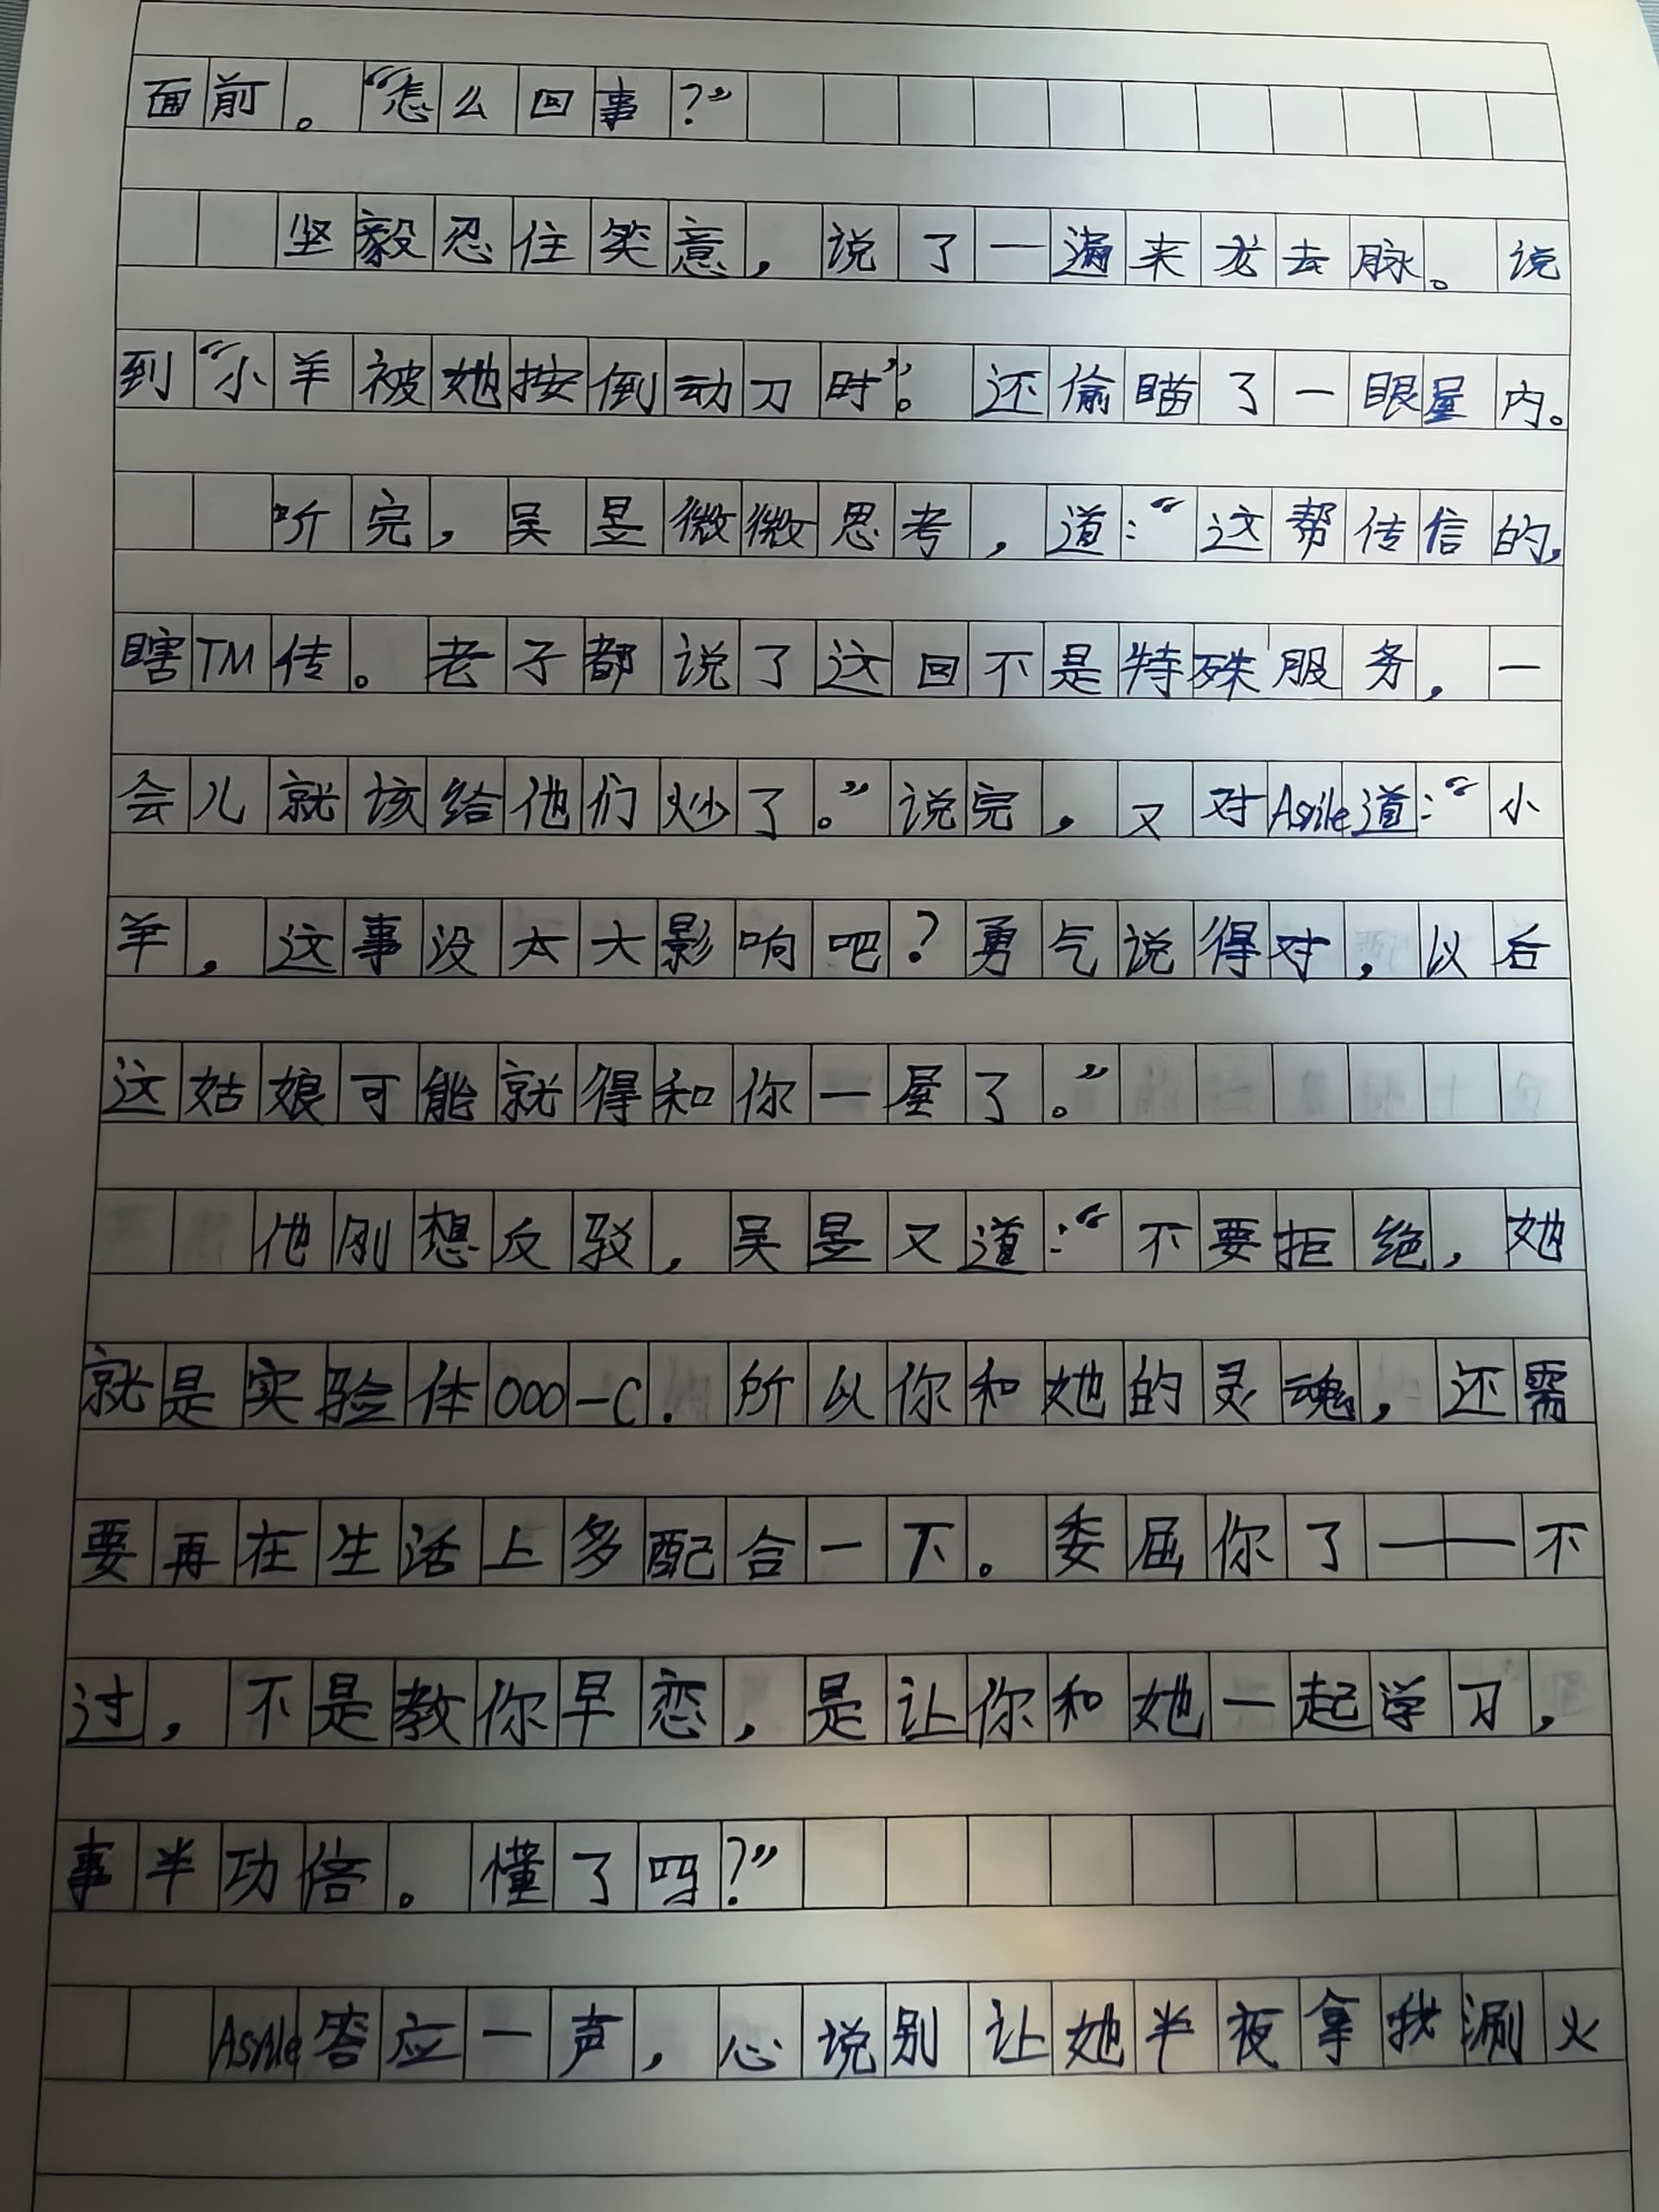 面前。“怎么回事?”
坚毅忍住笑意，说了一遍来龙去脉。说
到“小羊被她按倒动刀时”。还偷瞄了一眼屋内。
听完，吴昱微微思考，道：“这帮传信的，
瞎TM传。老子都说了这回不是特殊服务，一
会儿就该给他们炒了。”说完，又对Asile道：“小
羊，这事没太大影响吧？勇气说得对，以后
这姑娘可能就得和你一屋了。”
他刚想反驳，吴昱又道：“不要拒绝，她
就是实验体000-C. 所以你和她的灵魂，还需
要再在生活上多配合一下。委屈你了——不
过，不是教你早恋，是让你和她一起学习，
事半功倍。懂了吗?”
Asile答应一声，心说别让她半夜拿我涮火